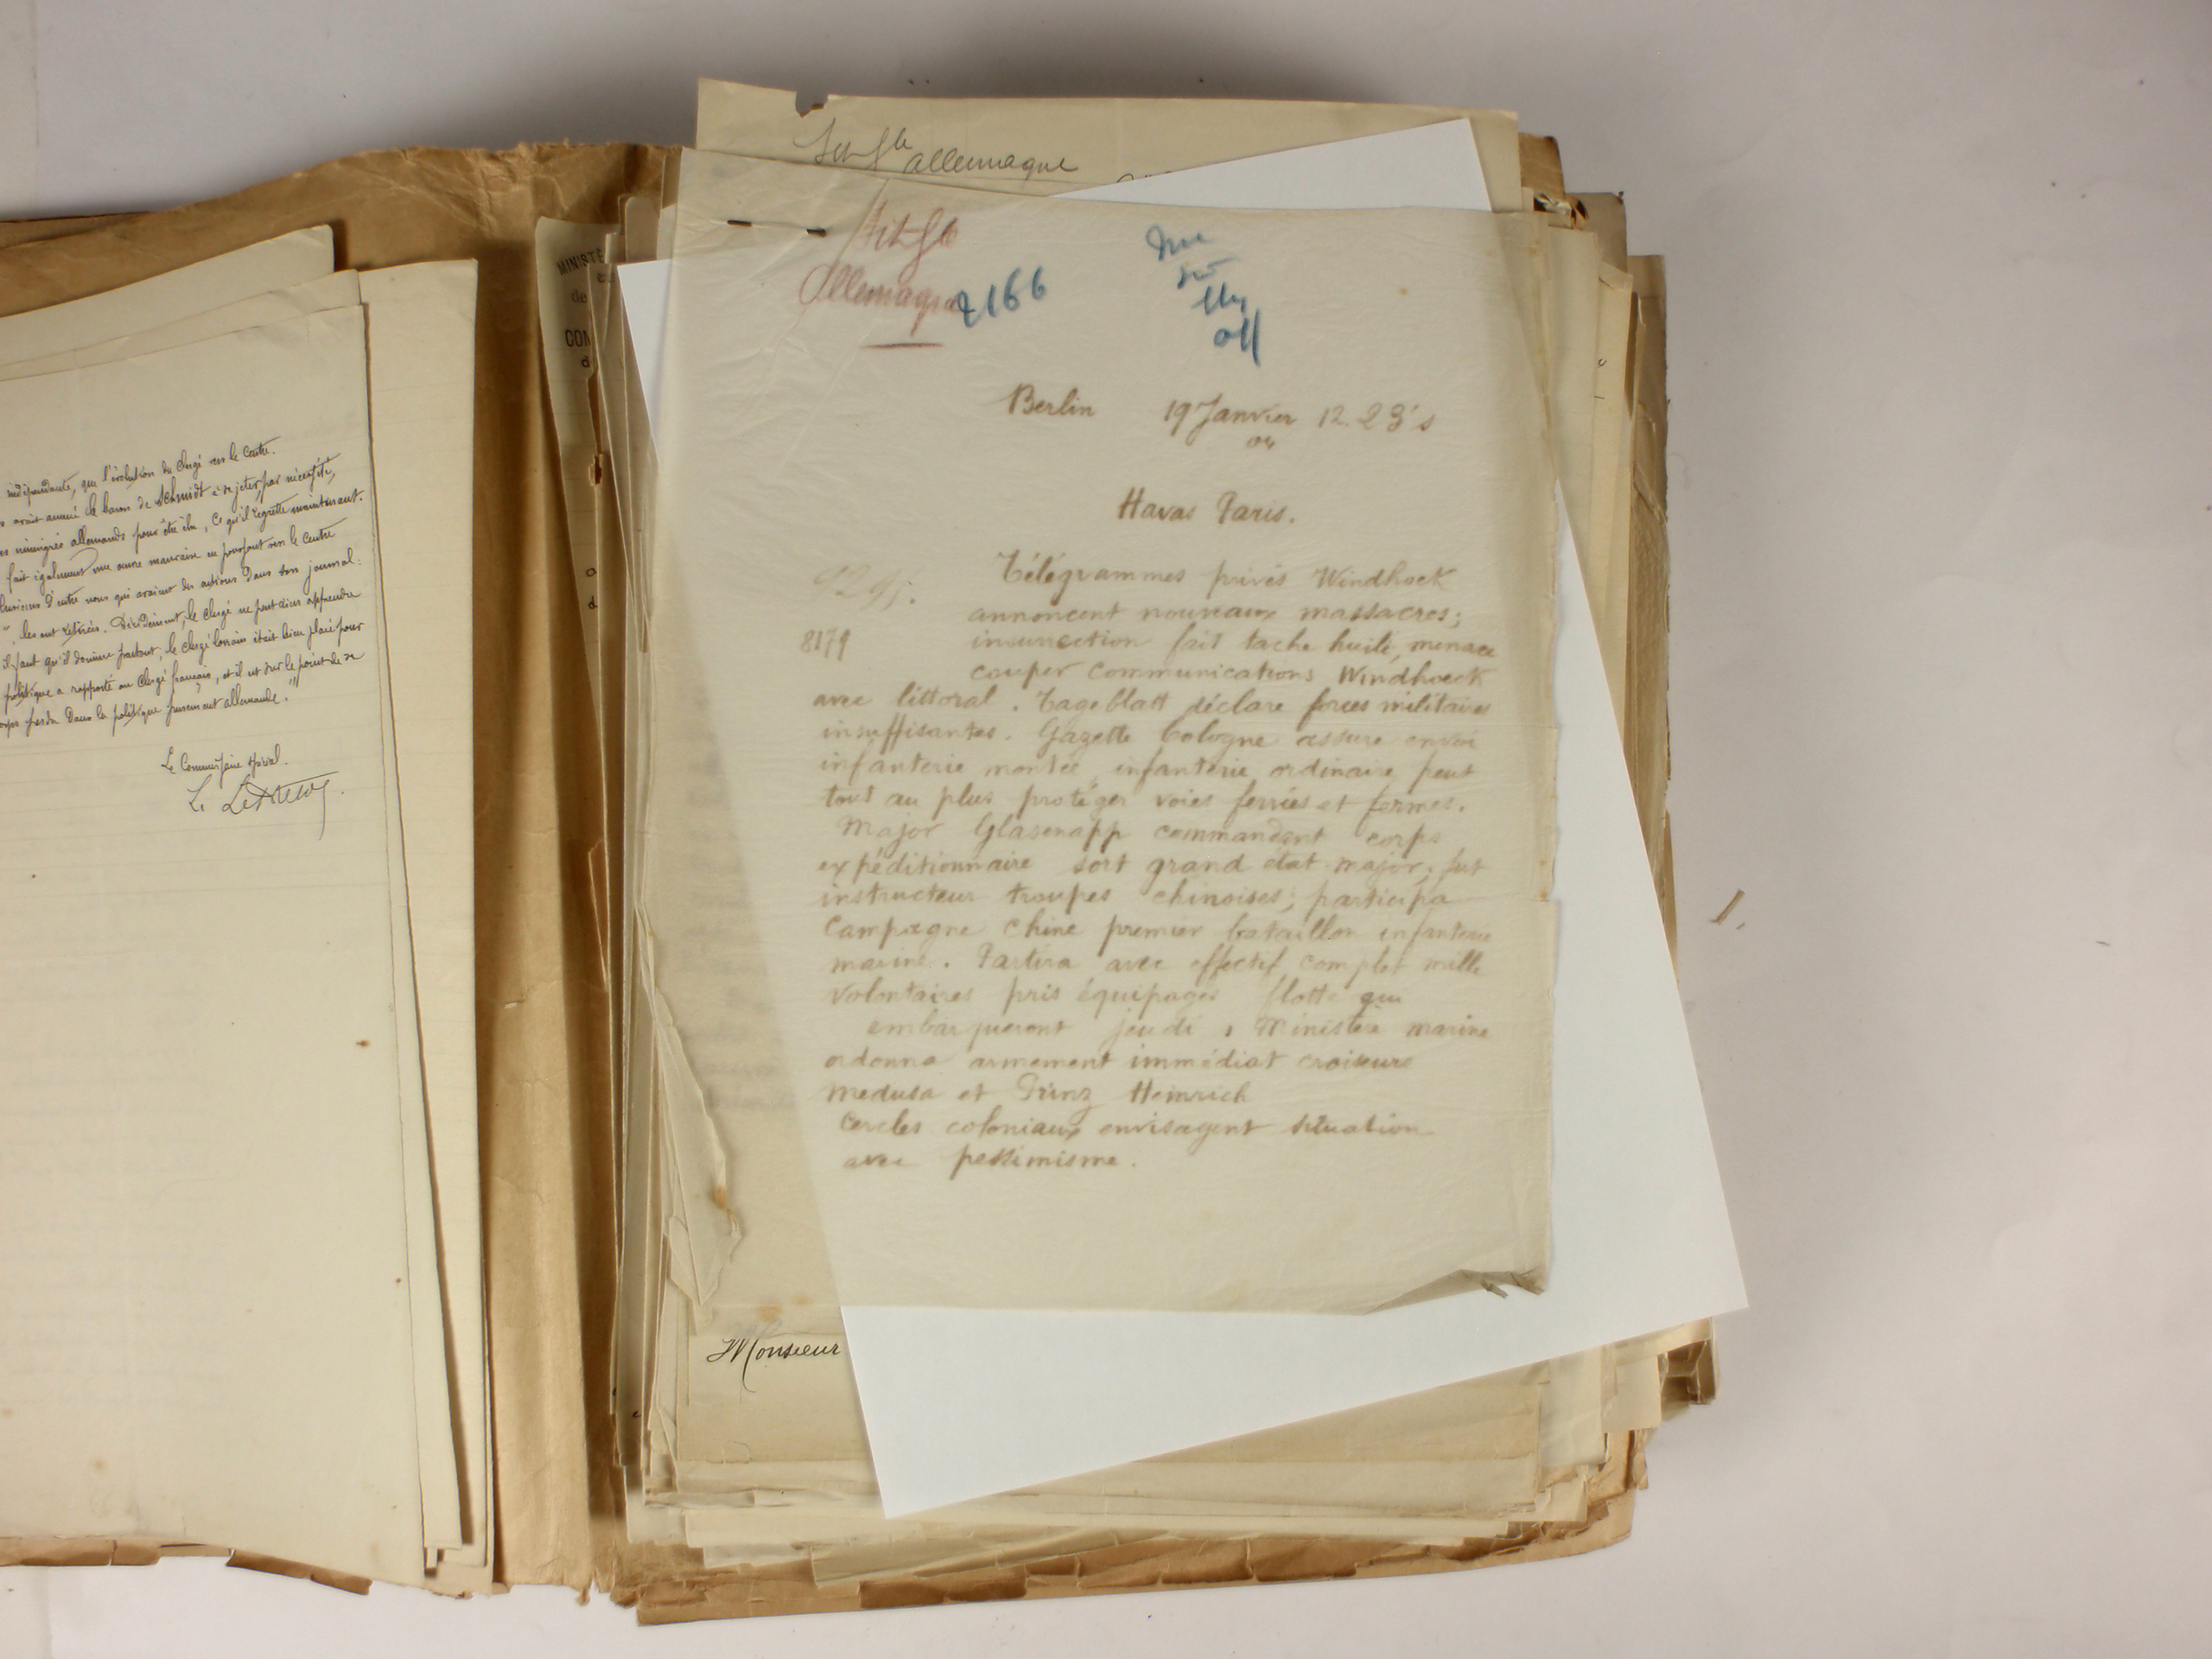 indépendante, que l'évolution du Clergé vers le Centre.
avait amené le baron de Schmidt à se jeter, par nécessité,
immigrés allemands pour être élu, ce qu'il regrette maintenant.
fait également une œuvre mauvaise en poussant vers le Centre
plusieurs d'entre nous qui avaient des actions dans son journal:
les ont retirées. Décidément, le clergé ne peut rien apprendre
il faut qu'il domine partout, le clergé lorrain était bien placé pour
politique a rapporté au Clergé français, et il est sur le point de se
corps perdu dans la politique purement allemande."
Le Commissaire spécial.
MINISTÈ
de
CON
d
allemagne
Sit Gle
Allemagne
2166
Berlin 19 Janvier 12.23 s
04
Havas Paris.
Télégrammes privés Windhoek
annoncent nouveaux massacres;
8179
insurrection fait tache huile, menace
couper communications Windhoeck
avec littoral. Tageblatt déclare forces militaires
insuffisantes. Gazette Cologne assure envoi
infanterie montée, infanterie ordinaire peut
tout au plus protéger voies ferrées et fermes.
Major Glasenapp commandant corps
expéditionnaire sort grand état-major; fut
instructeur troupes chinoises; participa
Campagne Chine premier bataillon infanterie
marine. Partira avec effectif complet mille
volontaires pris équipages flotte qui
embarqueront jeudi, Ministère marine
ordonna armement immédiat croiseurs
Medusa et Prinz Heinrich
Cercles coloniaux envisagent situation
avec pessimisme.
Monsieur